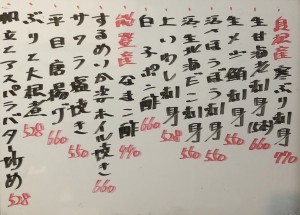 氷見産 寒ぶり刺身 770
生甘海老刺身 660
生メジ鮪刺身 550
活ほうぼう刺身 550
活北海だこ刺身 550
上いわし刺身 528
白子ポン酢 660
能登産 なまこ酢 440
するめいか芸ホイル焼き 660
サワラ塩焼き 550
平目唐揚げ 660
ぶり大根煮 528
帆立とアスパラバター炒め 528